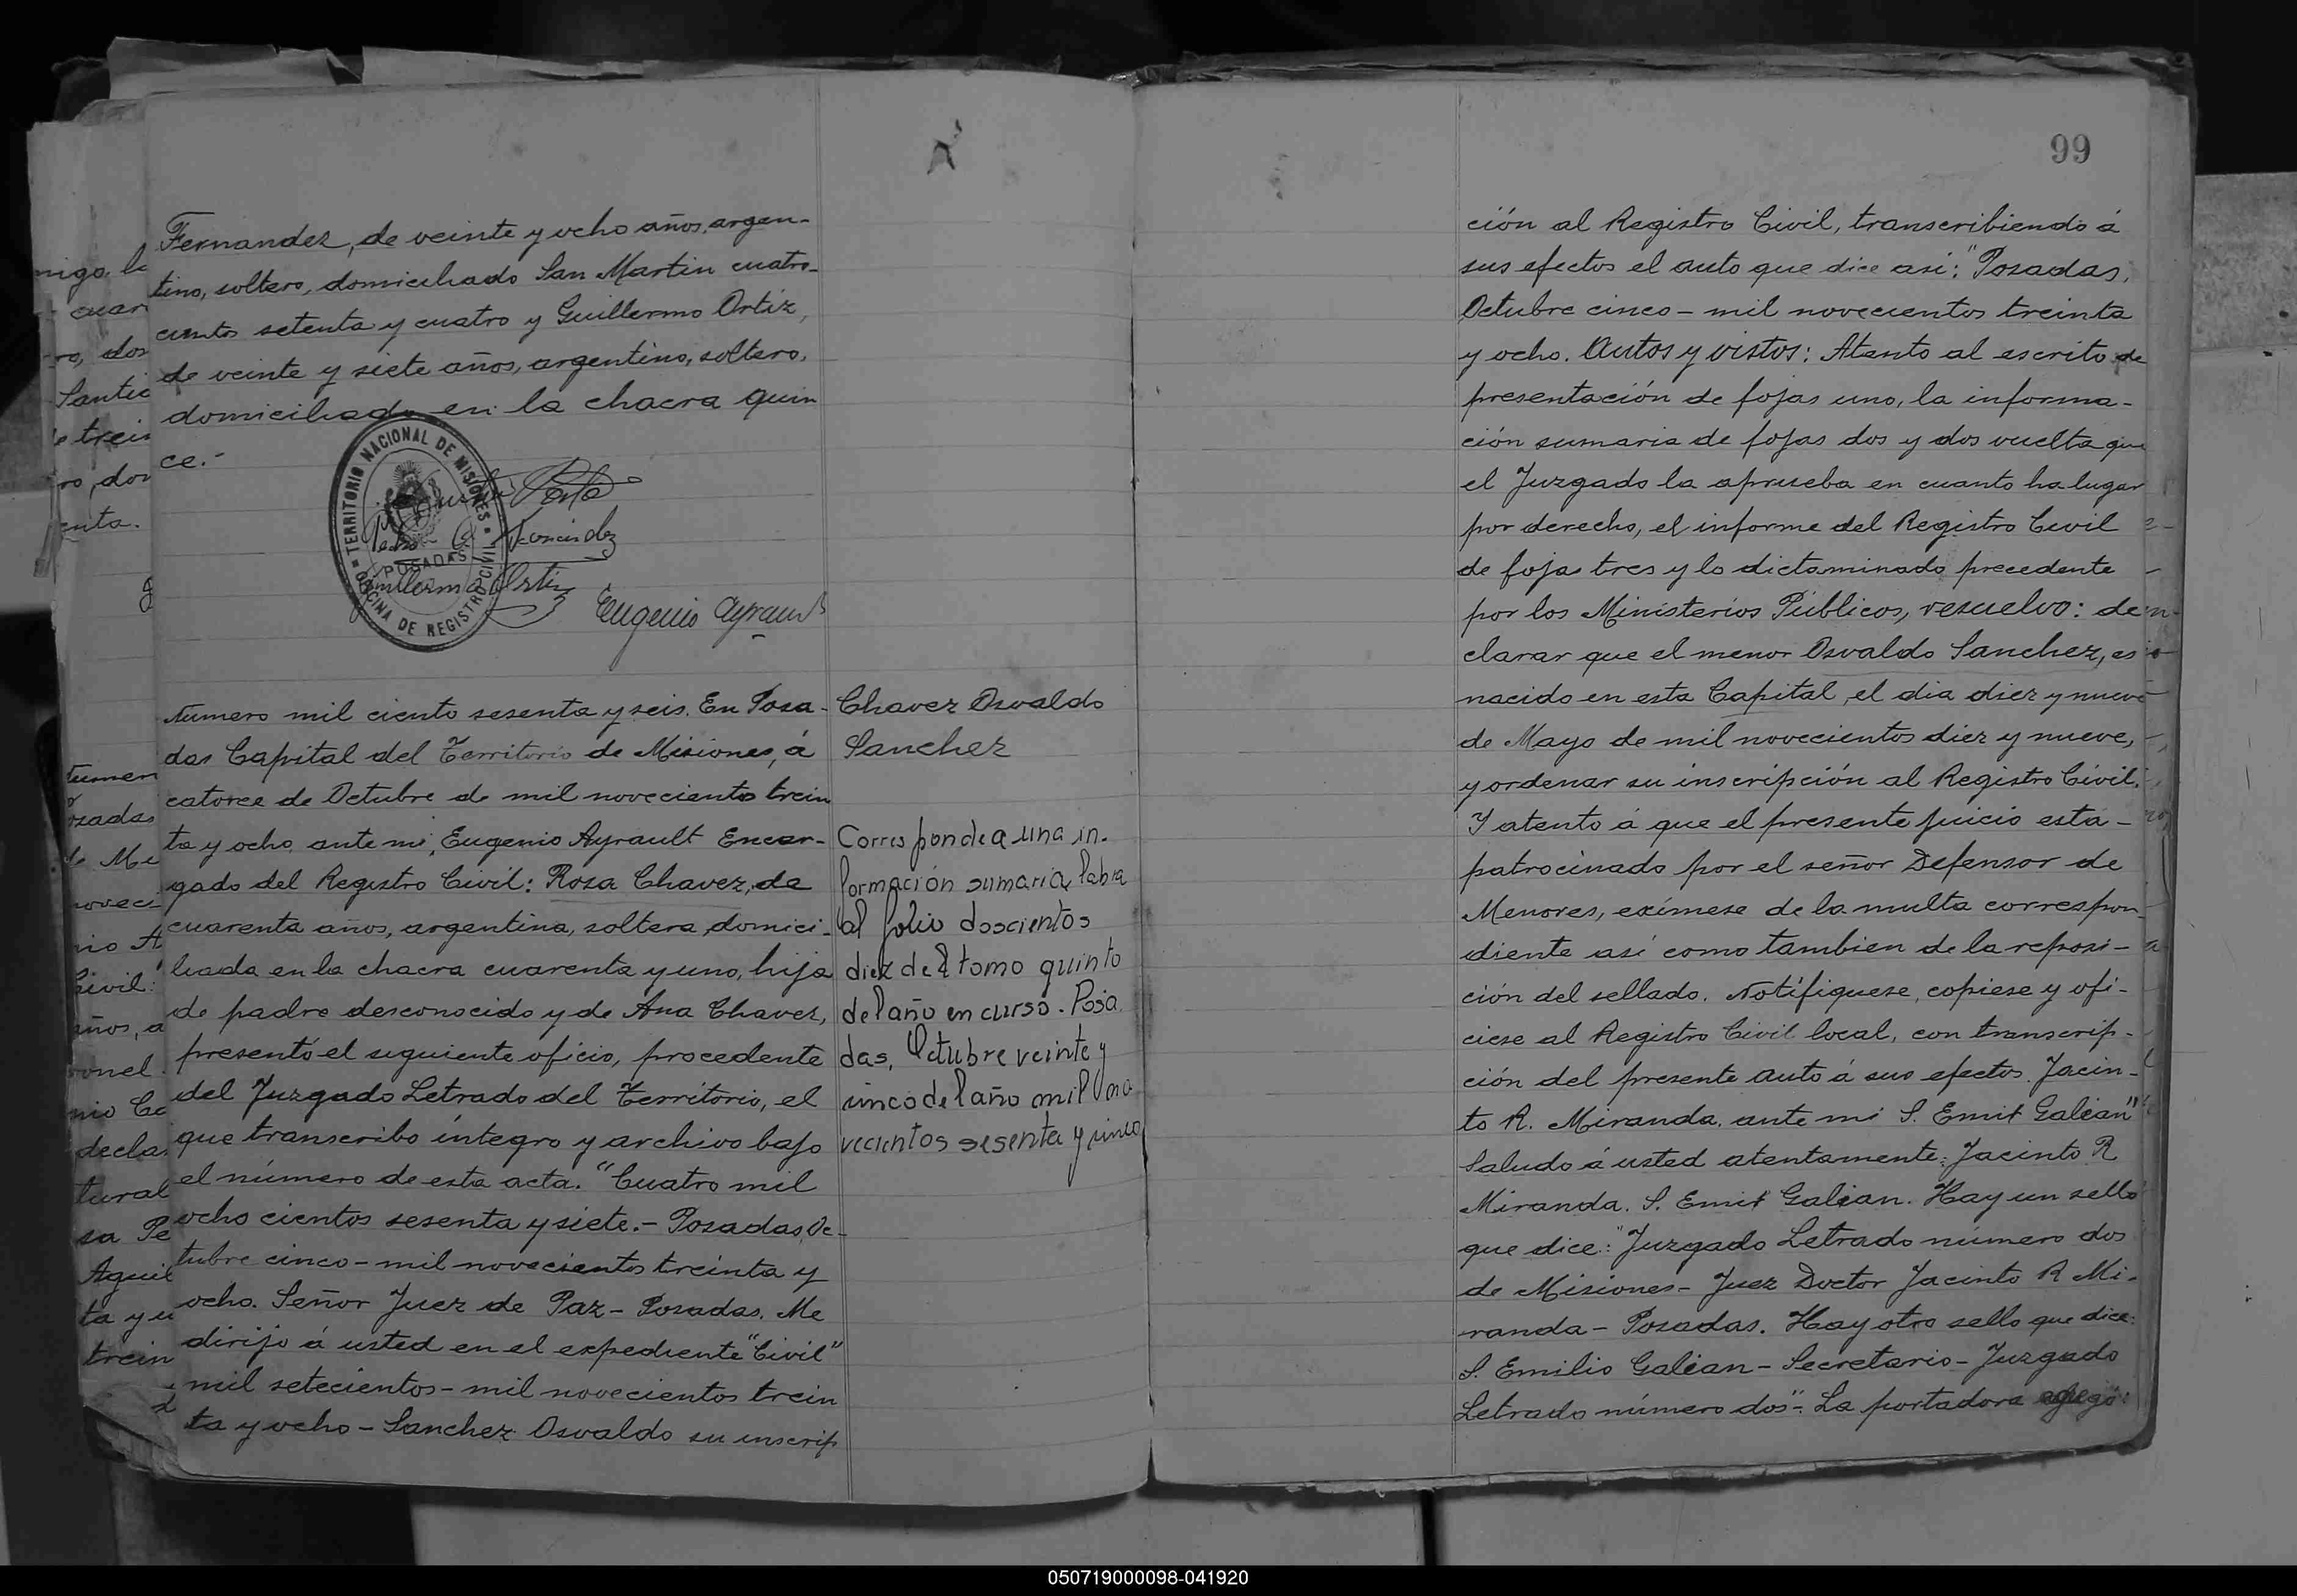 Fernandez, de veinte y ocho años, argen-
tino, soltero, domiciliado San Martin cuatro-
cientos setenta y cuatro y Guillermo Ortiz,
de veinte y siete años, argentino, soltero,
domiciliado en la chacra quin
ce.-
TERRITORIO NACIONAL DE MISIONES
POSADAS
OFICINA DE REGISTRO CIVIL
Guillermo Ortiz
Eugenio Ayrault
Numero mil ciento sesenta y seis. En Posa-
das Capital del Territorio de Misiones, á
catorce de Octubre de mil novecientos trein
ta y ocho, ante mi, Eugenio Ayrault Encar-
gado del Registro Civil: Rosa Chavez, de
cuarenta años, argentina, soltera, domici-
liada en la chacra cuarenta y uno, hija
de padre desconocido y de Ana Chavez,
presentó el siguiente oficio, procedente
del Juzgado Letrado del Territorio, el
que transcribo íntegro y archivo bajo
el número de esta acta. "Cuatro mil
ocho cientos sesenta y siete.- Posadas, Oc-
tubre cinco - mil novecientos treinta y
ocho. Señor Juez de Paz - Posadas. Me
dirijo á usted en el expediente "Civil"
mil setecientos - mil novecientos trein
ta y ocho - Sanchez Osvaldo su inscrip
Chavez Osvaldo
Sanchez
Corresponde a una in-
formación sumaria, labra
al folio doscientos
diez del tomo quinto
del año en curso. Posa
das, Octubre veinte y
cinco del año mil no
vecientos sesenta y cinco
99
ción al Registro Civil, transcribiendo á
sus efectos el auto que dice asi: "Posadas,
Octubre cinco - mil novecientos treinta
y ocho. Autos y vistos: Atento al escrito de
presentación de fojas uno, la informa-
ción sumaria de fojas dos y dos vuelta que
el Juzgado la aprueba en cuanto ha lugar
por derecho, el informe del Registro Civil
de foja tres y lo dictaminado precedente
por los Ministerios Públicos, resuelvo: de
clarar que el menor Osvaldo Sanchez, es
nacido en esta Capital, el dia diez y nueve
de Mayo de mil novecientos diez y nueve,
y ordenar su inscripción al Registro Civil.
Y atento á que el presente juicio está -
patrocinado por el señor Defensor de
Menores, exímese de la multa correspon-
diente así como tambien de la reposi-
ción del sellado. Notifíquese, copiese y ofi-
ciese al Registro Civil local, con transcrip-
ción del presente auto á sus efectos. Jacin-
to R. Miranda, ante mi S. Emil Galian"
Saludo á usted atentamente: Jacinto R
Miranda. S. Emil Galian. Hay un sello
que dice: "Juzgado Letrado número dos
de Misiones - Juez Doctor Jacinto R Mi-
randa - Posadas. Hay otro sello que dice:
S. Emilio Galian - Secretario - Juzgado
Letrado número dos". La portadora agregó: